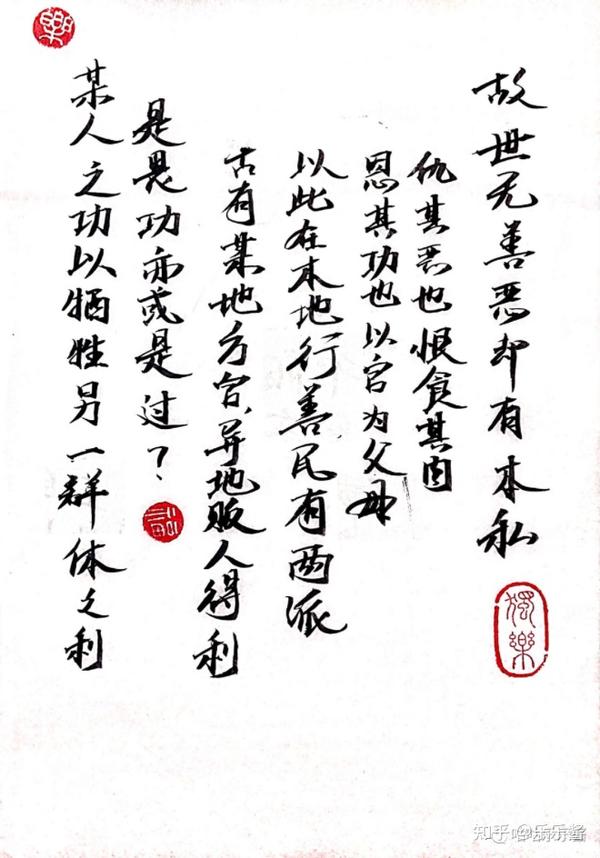 樂
某人之功以牺牲另一群体之利
是畏功亦或是过？
古有某地方官、异地贩人得利
以此在本地行善民有两派
恩其功也以官为父母
仇其恶也恨食其肉
故世无善恶却有本私
獨樂
知乎